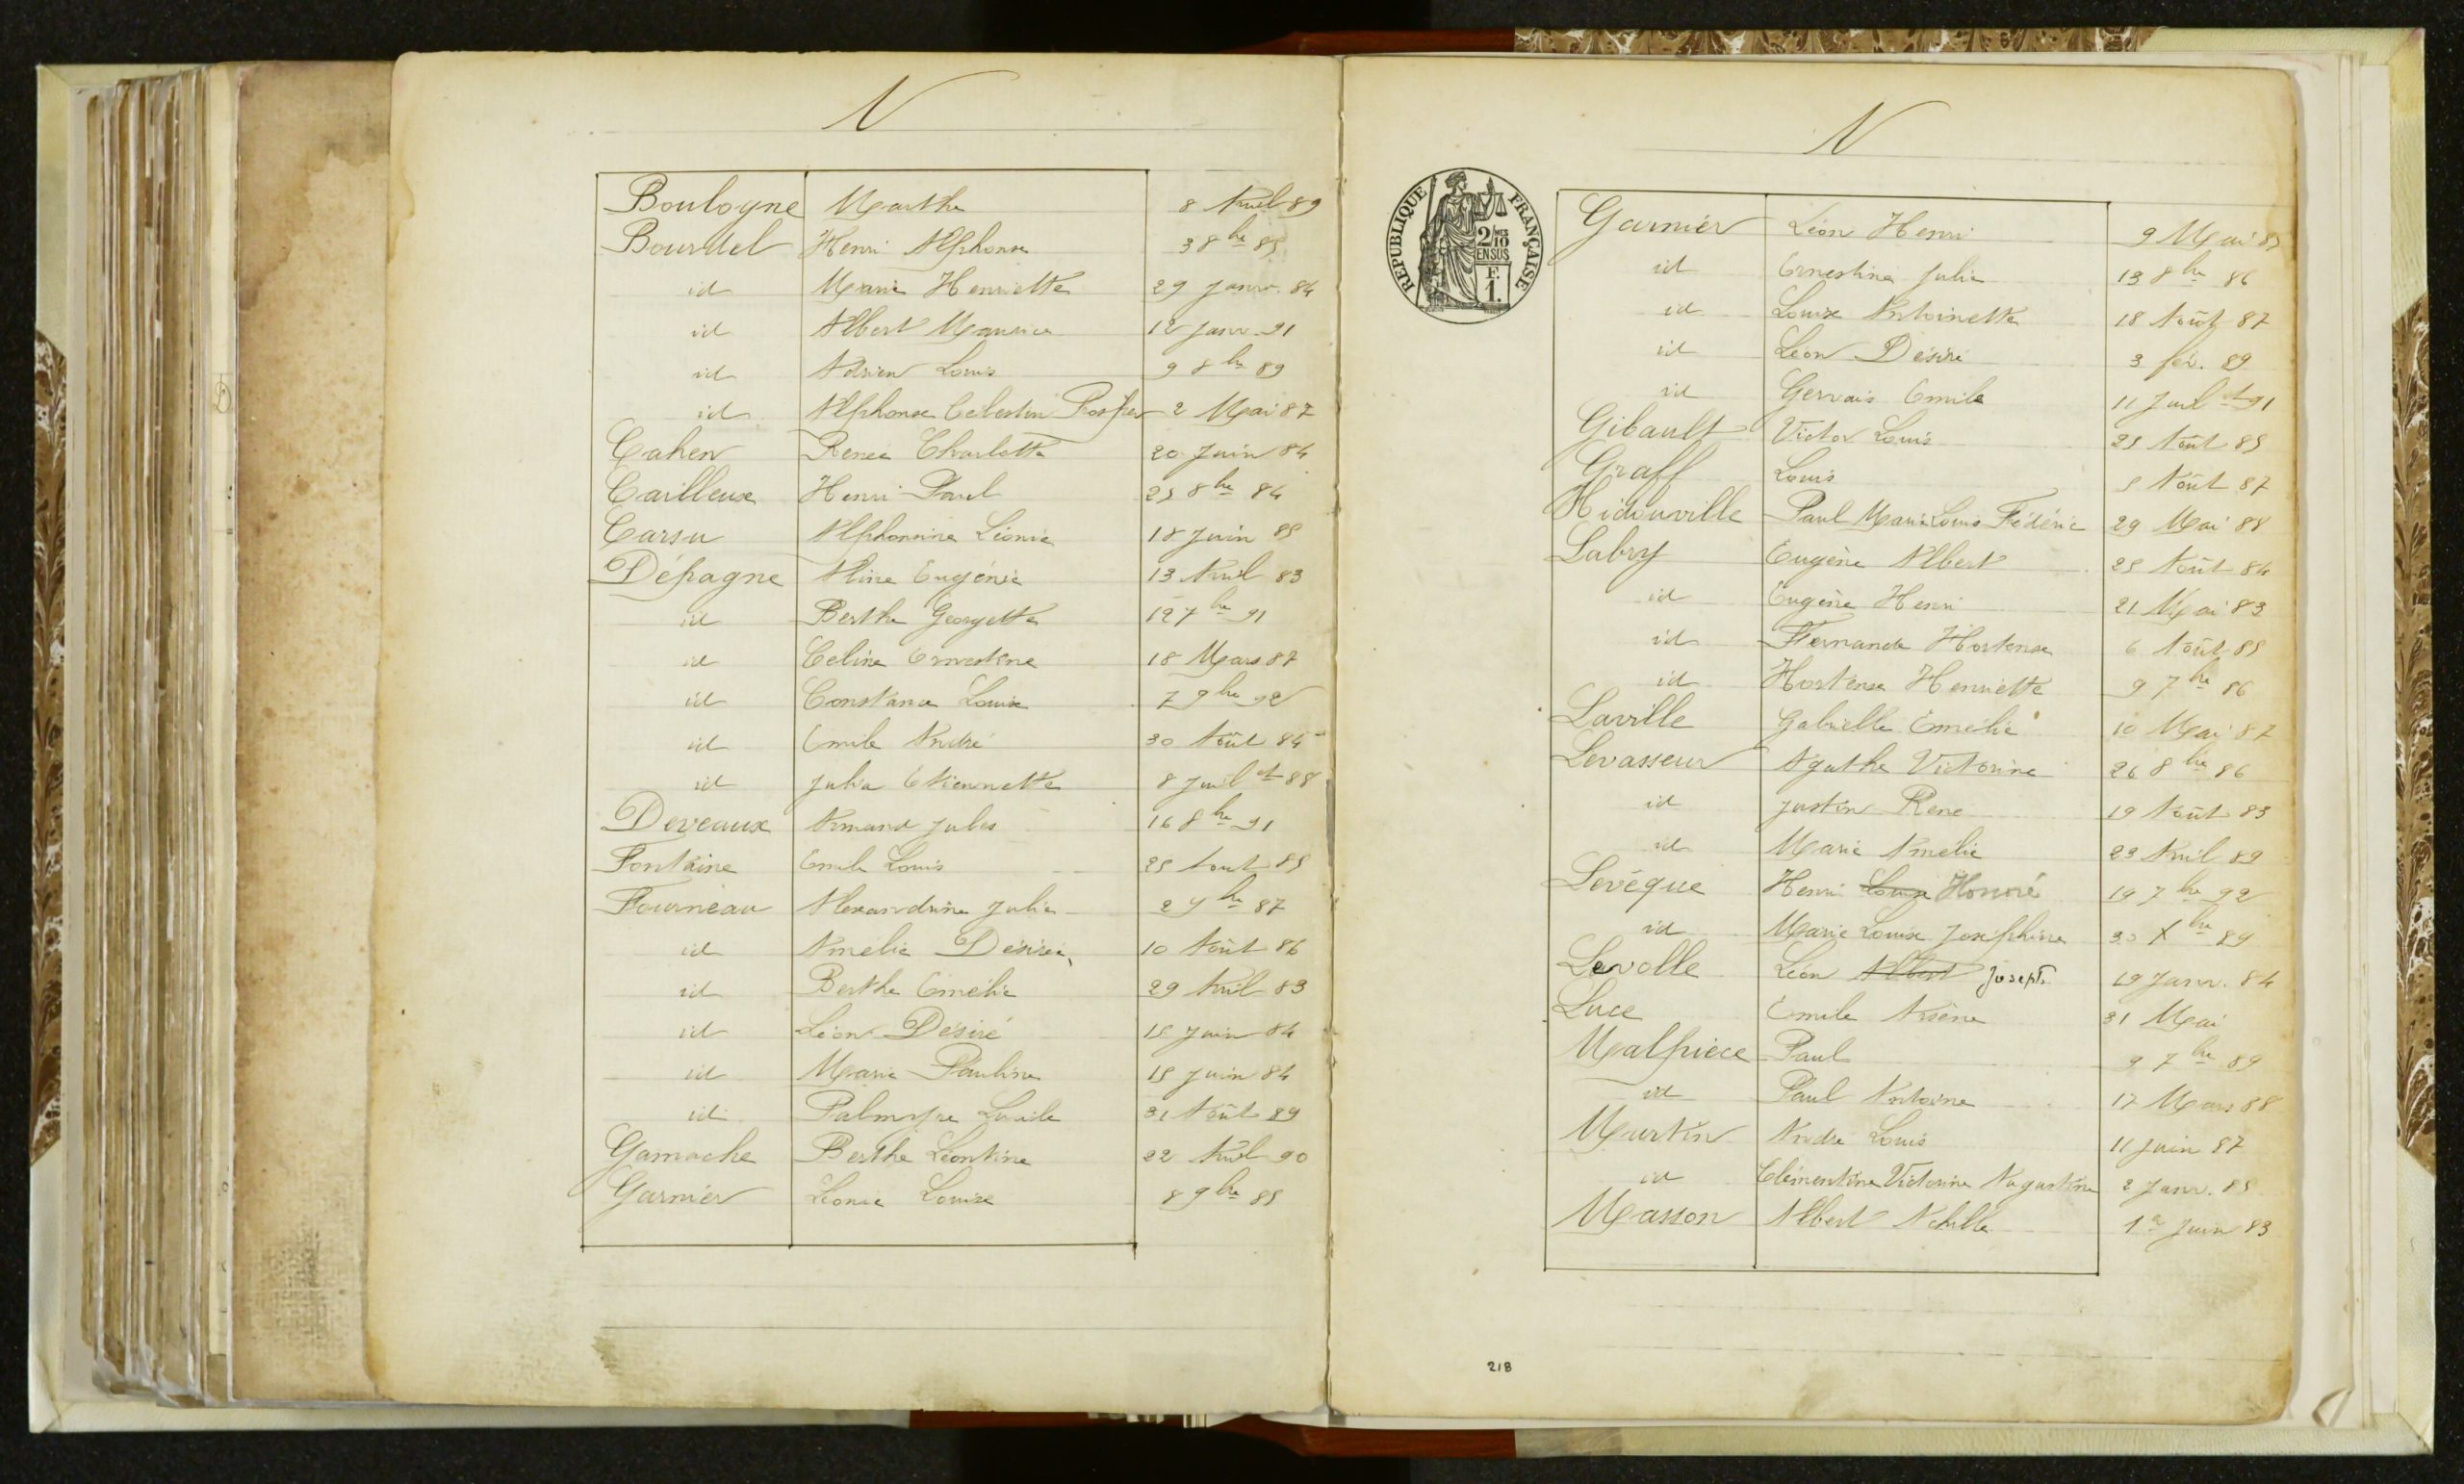 N
Boulogne Marthe 8 Avril 89
Bourdel Henri Alphonse 3 8bre 85
id Marie Henriette 29 janv. 84
id Albert Maurice 12 janv. 91
id Adrien Louis 9 8bre 89
id Alphonse Célestin Prosper 2 Mai 87
Cahen Renée Charlotte 20 Juin 84
Cailleux Henri Paul 25 8bre 84
Carsu Alphonsine Léonie 18 Juin 85
Dépagne Aline Eugénie 13 Avril 83
id Berthe Georgette 12 7bre 91
id Céline Ernestine 18 Mars 87
id Constance Louise 7 9bre 92
id Emile André 30 Août 84
id Julia Etiennette 8 Juillet 88
Deveaux Armand Jules 16 8bre 91
Fontaine Emile Louis 25 Aout 85
Fourneau Alexandrine Julie 87
id Amélie Désirée 10 Août 86
id Berthe Emélie 29 Avril 83
id Léon Désiré 15 Juin 84
id Marie Pauline 15 Juin 84
id Palmyre Lucile 31 Août 89
Gamache Berthe Léontine 22 Avril 90
Garnier Léonie Louise 8 9bre 85
N
REPUBLIQUE FRANÇAISE
2/10 EN SUS
F. 1.
Garnier Léon Henri 9 Mai
id Ernestine Julie 13 8bre 86
id Louise Antoinette 18 Août 87
id Léon Désiré 3 fév. 89
id Gervais Emile 11 Juillet 91
Gibault Victor Louis 25 Août 85
Graff Louis 5 Août 87
Hidouville Paul Marie Louis Fédéric 29 Mai 88
Labry Eugène Albert 25 Août 84
id Eugène Henri 21 Mai 83
id Fernande Hortense 6 Août 85
id Hortense Henriette 9 7bre 86
Laville Gabrielle Emélie 10 Mai 87
Levasseur Agathe Victorine 26 8bre 86
id Justin René 19 Août 83
id Marie Amélie 23 Avril 89
Levêque Henri Louise Honoré 19 7bre 92
id Marie Louise Joséphine 30 Xbre 89
Levolle Léon Albert Joseph 19 Janv. 84
Luce Emile Arsène 31 Mai
Malpièce Paul 9 7bre 89
id Paul Antoine 17 Mars 88
Martin André Louis 11 Juin 87
id Clémentine Victorine Augustine 2 Janv. 85
Masson Albert Achille 1er Juin 83
218